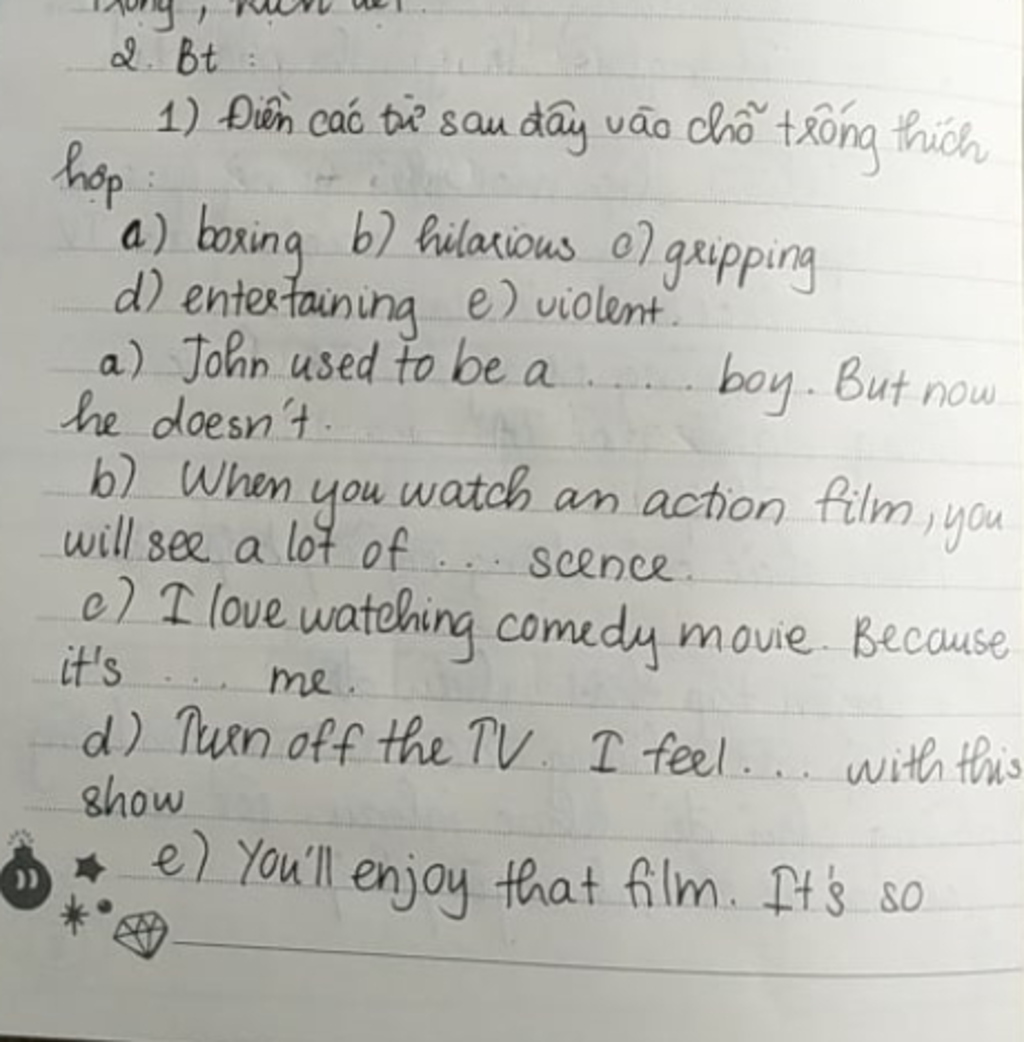 2. Bt :
1) Điền các từ sau đây vào chỗ trống thích
hợp :
a) boring b) hilarious c) gripping
d) entertaining e) violent.
a) John used to be a ..... boy. But now
he doesn't.
b) When you watch an action film, you
will see a lot of ... scence.
c) I love watching comedy movie. Because
it's .... me.
d) Turn off the TV. I feel .... with this
show
e) You'll enjoy that film. It's so